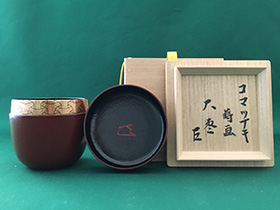 コマツナギ
蒔画
大棗